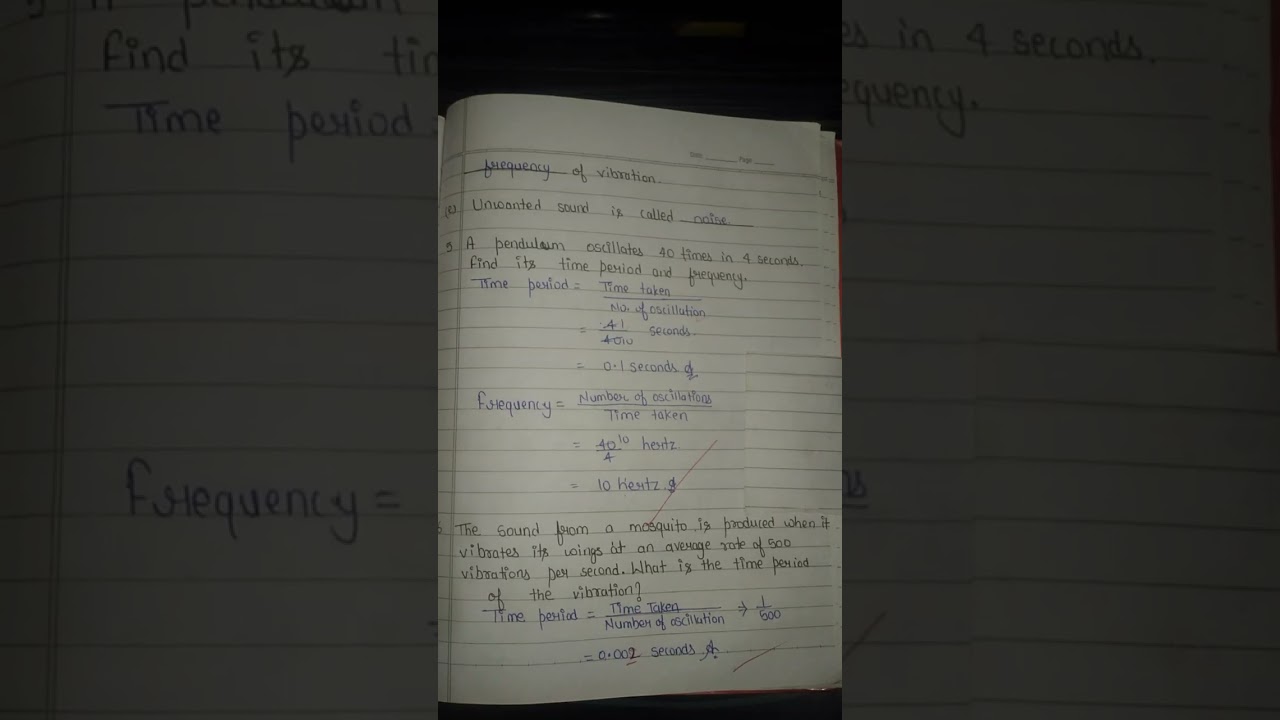 Date Page
frequency of vibration.
(e) Unwanted sound is called noise.
5. A pendulum oscillates 40 times in 4 seconds.
Find its time period and frequency.
Time period = Time taken
No. of oscillation
= 4 1 seconds.
40 10
= 0.1 seconds
Frequency = Number of oscillations
Time taken
= 40 10 hertz
4
= 10 hertz
6 The sound from a mosquito is produced when it
vibrates its wings at an average rate of 500
vibrations per second. What is the time period
of the vibration?
Time period = Time Taken ⇒ 1
Number of oscillation 500
= 0.002 seconds